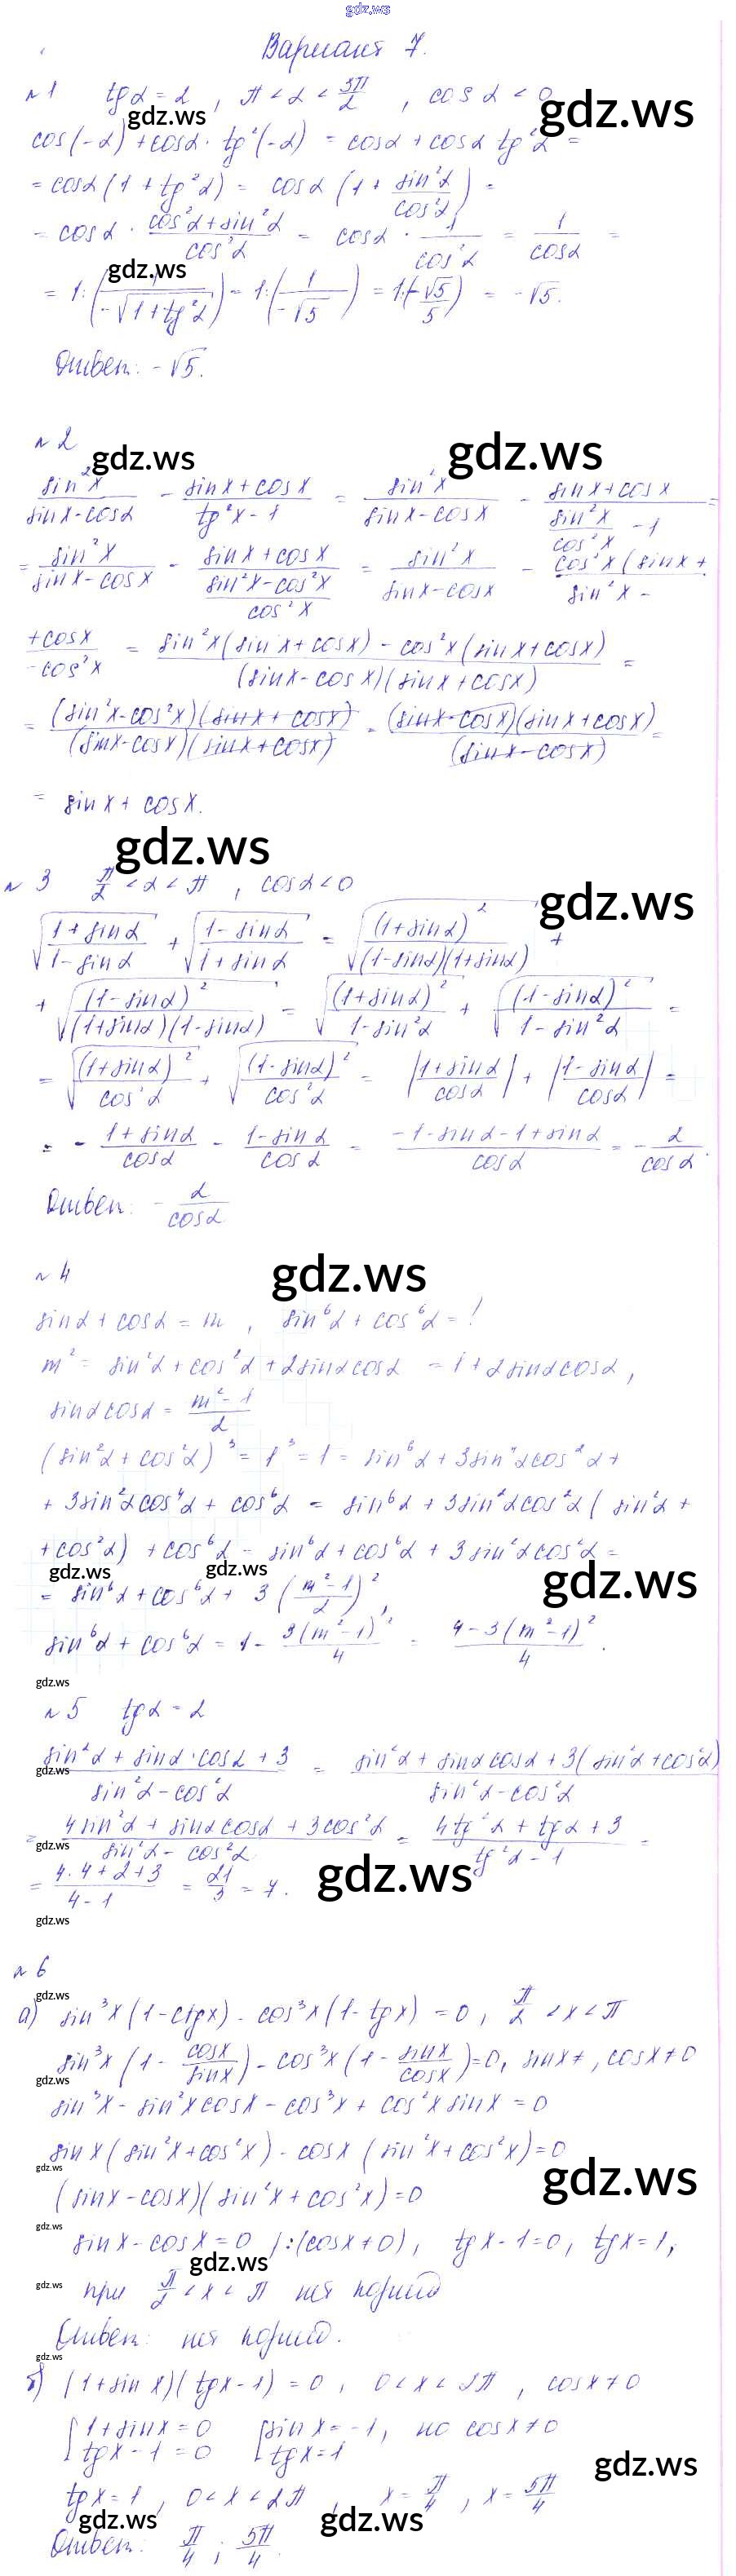 gdz.ws
Вариант 7.
№1 tg α = 2, π < α < 3π/2, cos α < 0
cos(-α) + cos α · tg²(-α) = cos α + cos α tg²α =
= cos α (1 + tg²α) = cos α (1 + sin²α/cos²α) =
= cos α · (cos²α + sin²α)/cos²α = cos α · 1/cos²α = 1/cos α =
= 1 : (1/(-√(1 + tg²α))) = 1 : (1/(-√5)) = 1 : (-√5/5) = -√5.
Ответ: -√5.
№2
sin²x/(sin x - cos α) - (sin x + cos x)/(tg²x - 1) = sin²x/(sin x - cos x) - (sin x + cos x)/(sin²x/cos²x - 1) =
= sin²x/(sin x - cos x) - (sin x + cos x)/((sin²x - cos²x)/cos²x) = sin²x/(sin x - cos x) - cos²x (sin x +/sin²x -
+ cos x/- cos²x = (sin²x (sin x + cos x) - cos²x (sin x + cos x))/((sin x - cos x)(sin x + cos x)) =
= (sin²x - cos²x)(sin x + cos x)/((sin x - cos x)(sin x + cos x)) = (sin x - cos x)(sin x + cos x)/(sin x - cos x) =
= sin x + cos x.
№3 π/2 < α < π, cos α < 0
√((1 + sin α)/(1 - sin α)) + √((1 - sin α)/(1 + sin α)) = √((1 + sin α)²/((1 - sin α)(1 + sin α))) +
+ √((1 - sin α)²/((1 + sin α)(1 - sin α))) = √((1 + sin α)²/(1 - sin²α)) + √((1 - sin α)²/(1 - sin²α)) =
= √((1 + sin α)²/cos²α) + √((1 - sin α)²/cos²α) = |(1 + sin α)/cos α| + |(1 - sin α)/cos α| =
= - (1 + sin α)/cos α - (1 - sin α)/cos α = (-1 - sin α - 1 + sin α)/cos α = - 2/cos α.
Ответ: - 2/cos α
№4
sin α + cos α = m, sin⁶α + cos⁶α = !
m² = sin²α + cos²α + 2 sin α cos α = 1 + 2 sin α cos α,
sin α cos α = (m² - 1)/2
(sin²α + cos²α)³ = 1³ = 1 = sin⁶α + 3 sin⁴α cos²α +
+ 3 sin²α cos⁴α + cos⁶α = sin⁶α + 3 sin²α cos²α (sin²α +
+ cos²α) + cos⁶α = sin⁶α + cos⁶α + 3 sin²α cos²α =
= sin⁶α + cos⁶α + 3 ((m² - 1)/2)²,
sin⁶α + cos⁶α = 1 - 3(m² - 1)²/4 = (4 - 3(m² - 1)²)/4.
№5 tg α = 2
(sin²α + sin α · cos α + 3)/(sin²α - cos²α) = (sin²α + sin α cos α + 3(sin²α + cos²α))/(sin²α - cos²α)
= (4 sin²α + sin α cos α + 3 cos²α)/(sin²α - cos²α) = (4 tg²α + tg α + 3)/(tg²α - 1) =
= (4·4 + 2 + 3)/(4 - 1) = 21/3 = 7.
№6
а) sin³x (1 - ctg x) - cos³x (1 - tg x) = 0, π/2 < x < π
sin³x (1 - cos x/sin x) - cos³x (1 - sin x/cos x) = 0, sin x ≠, cos x ≠ 0
sin³x - sin²x cos x - cos³x + cos²x sin x = 0
sin x (sin²x + cos²x) - cos x (sin²x + cos²x) = 0
(sin x - cos x)(sin²x + cos²x) = 0
sin x - cos x = 0 /:(cos x ≠ 0), tg x - 1 = 0, tg x = 1,
при π/2 < x < π нет корней
Ответ: нет корней.
б) (1 + sin x)(tg x - 1) = 0, 0 < x < 2π, cos x ≠ 0
[1 + sin x = 0 [sin x = -1, но cos x ≠ 0
[tg x - 1 = 0 [tg x = 1
tg x = 1, 0 < x < 2π, x = π/4, x = 5π/4
Ответ: π/4; 5π/4.